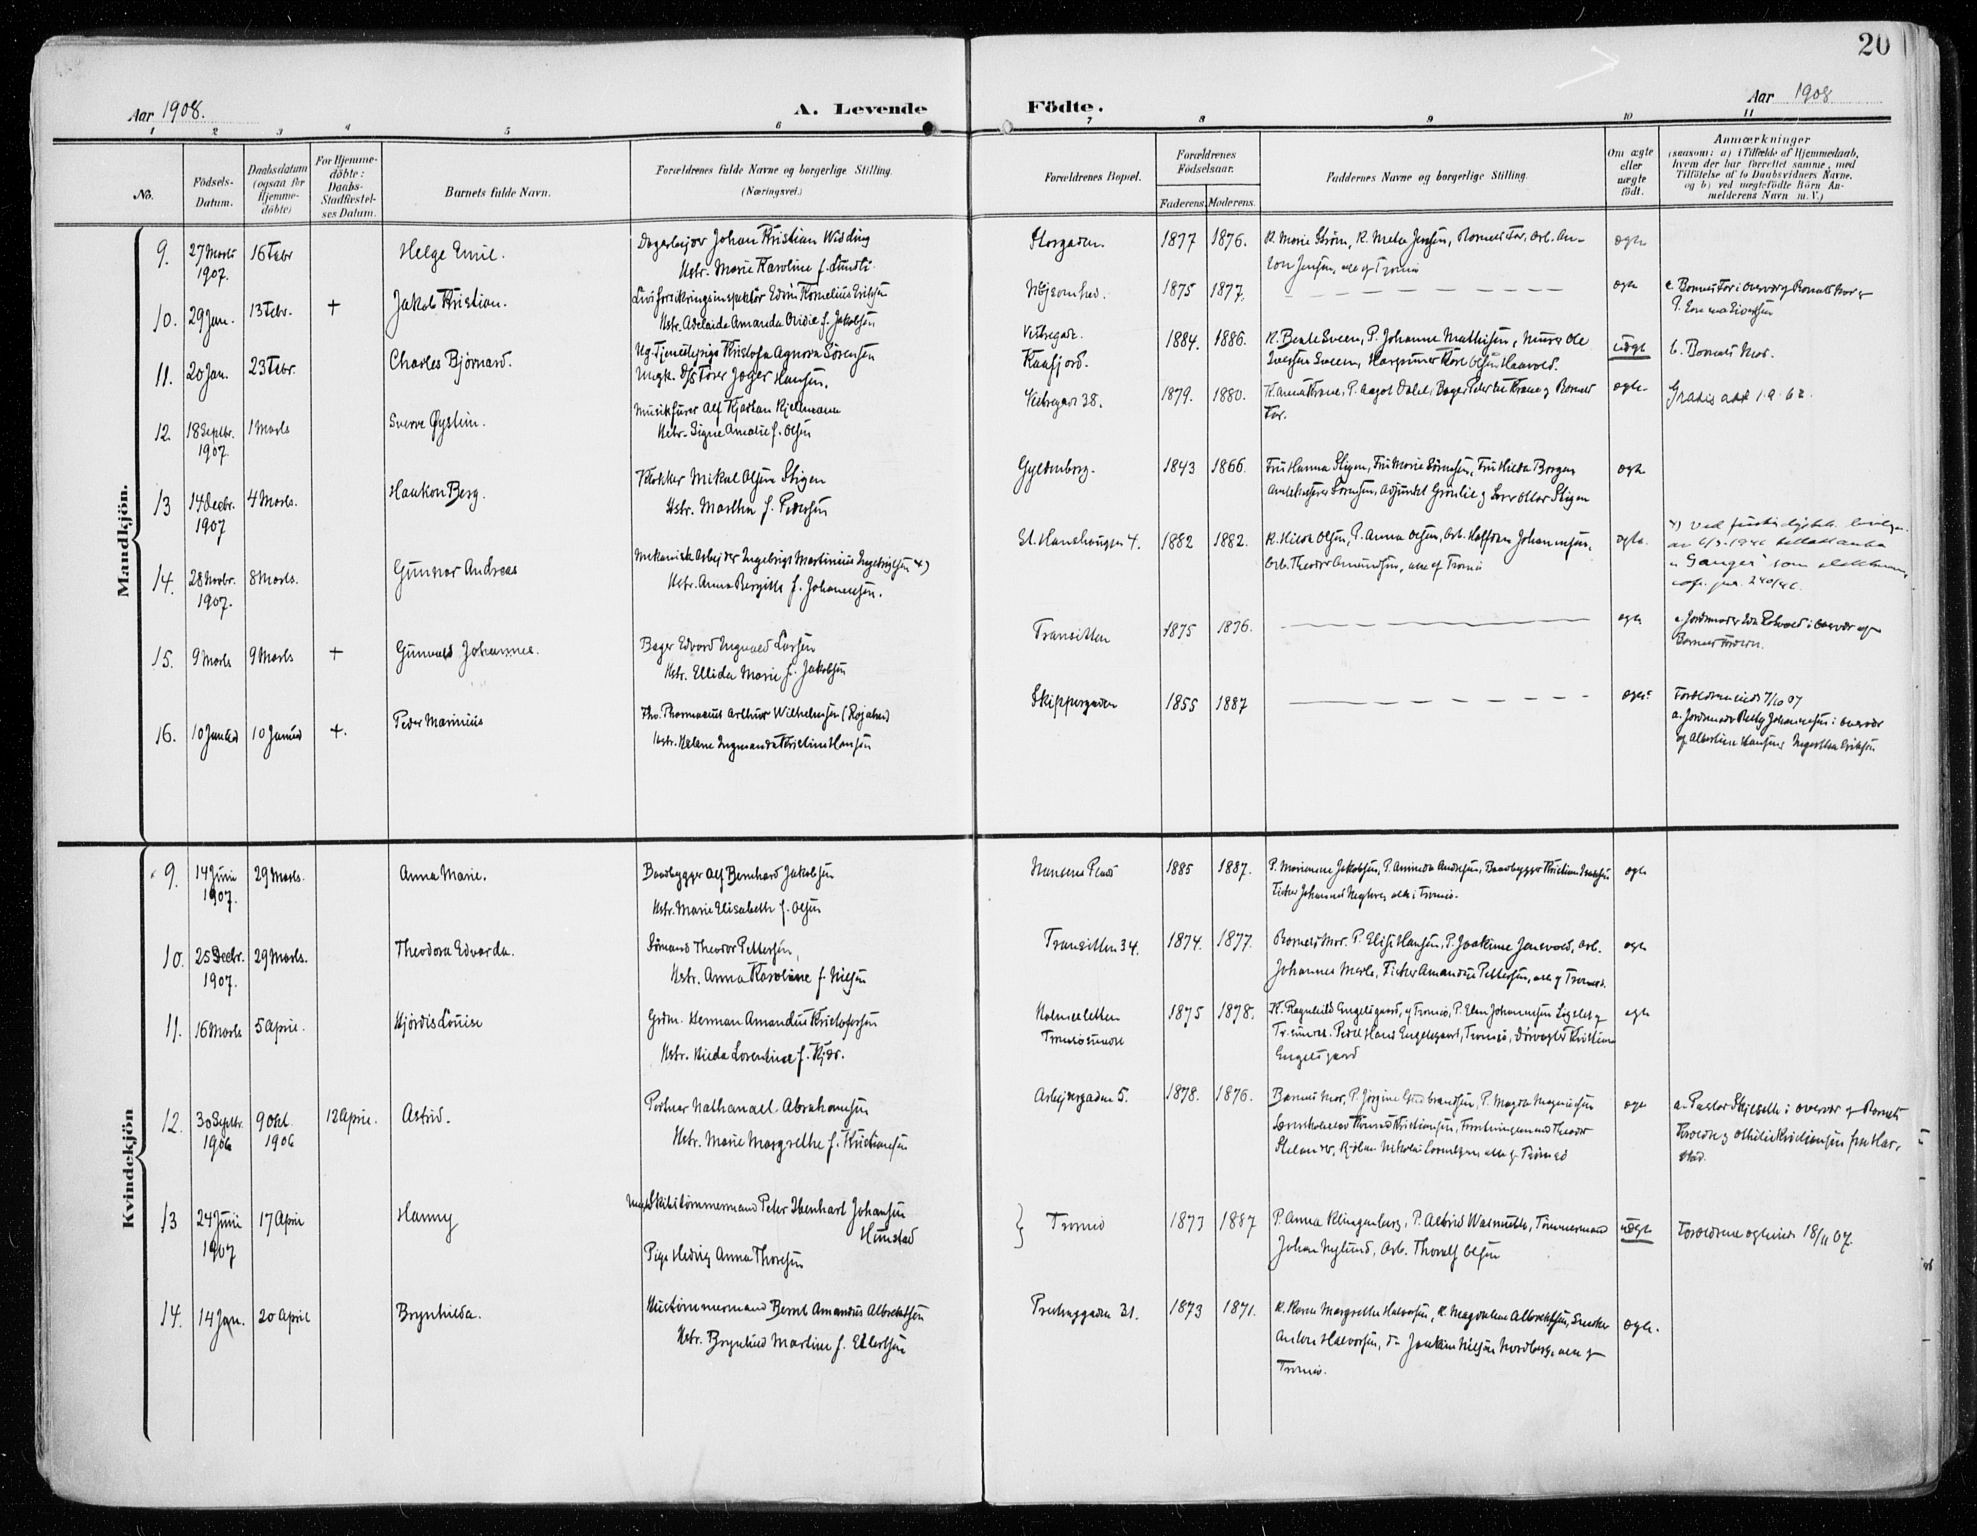 20
Aar 1908.
A. Levende
Födte.
Aar 1908
1 2 3 4 5 6 7 8 9 10 11
No.
Födsels-
Datum.
Daabsdatum
(ogsaa for
Hjemme-
döbte)
For Hjemme-
döbte:
Daabs-
Stadfæstel-
ses Datum.
Barnets fulde Navn.
Forældrenes fulde Navne og borgerlige Stilling.
(Næringsvei.)
Forældrenes Bopæl.
Forældrenes
Födselsaar.
Faderens. Moderens.
Faddernes Navne og borgerlige Stilling.
Om ægte
eller
uægte
födt.
Anmærkninger
(saasom: a) i Tilfælde af Hjemmedaab,
hvem der har forrettet samme, med
Tilföielse af to Daabsvidners Navne,
og b) ved uegtefödte Börn An-
melderens Navn m. V.)
Mandkjön.
9. 27 Marts 1907. 16 Febr Helge Emil.
Dagarbejder Johan Kristian Widding
Hstr. Marie Karoline f. Lundli.
Storgaden. 1877 1876.
K. Marie Strøm, K. Meta Jensen, Barnets Far, Arb. An-
ton Jensen, alle af Tromsø
ægte
10. 29 Jan. 13 Febr. + Jakob Kristian.
Livsforsikringsinspektør Edvin Kornelius Eriksen
Hstr. Adelaide Amanda Ovidie f. Jakobsen
Nøjsomhed. 1875 1877.
ægte
11. 20 Jan. 23 Febr. Charles Bjørnard.
Ug. Tjenestepige Kristofa Agnora Sørensen
Ungk. D/S fører Jøger Hansen.
Vestregade.
Kaafjord.
1884. 1886.
K. Beate Sveen, P. Johanne Mathisen, Murer Ole
Iversen Sveen, Karl Olsen Haavold.
uægte
b. Barnets Mor.
12. 18 Septbr. 1907. 1 Marts Sverre Øystein.
Musikfører Alf Kjartan Kjelmann
Hstr. Signe Amalie f. Olsen
Vestregade 38. 1879. 1880.
K. Anna Krane, P. Aagot Dalel, Bager Peder Krane og Barnets
Far.
ægte.
Gratis att. 1.9.62.
13 14 Decbr. 1907 4 Marts. Haakon Berg.
Klokker Mikal Olsen Stigen
Hstr. Martha f. Pedersen
Gyldenborg. 1843 1866.
Fru Hanna Stigen, Fru Marie Sørensen, Fru Hilda Borgen
Sørensen, Adjunkt Grønlie og Lærer Ottar Stigen
ægte
14. 28 Novbr. 1907. 8 Marts. Gunnar Andreas
Mekanisk Arbejder Ingebrigt Martinius Ingebrigtsen x)
Hstr. Anna Bergitte f. Johannesen.
St. Hanshaugen 4. 1882 1882.
K. Hilda Olsen, P. Anna Olsen, Arb. Halfdan Johannesen,
Arb. Theodor Amundsen, alle af Tromsø
ægte.
x) Ved
"Ganger" som slektsnavn,
jnr. 240/46.
15. 9 Marts 9 Marts + Gunvald Johannes.
Bager Edvard Ingvald Larsen
Hstr. Ellida Marie f. Jakobsen
Transitten 1875 1876.
ægte
a. Jordmoder i Overvær af
Barnets Forældre.
16. 10 Januar 10 Januar +. Peder Marinius
Tho. Thomassius Arthur Wilhelmsen (Røjahn)
Hstr. Helene Ingmanda Kristine Hansen
Skippergaden 1855 1887
ægte
Forældrene viede 7/10 07
a. Jordmoder Betty Johannesen i Overvær
af Albertine Hansen Eriksen
Kvindekjön
9. 14 Juni 1907. 29 Marts. Anna Marie.
Baadbygger Alf Bernhard Jakobsen
Hstr. Marie Elisabeth f. Olsen
Hansens Plads 1885 1887.
P. Marianne Jakobsen, P. Aminda Andresen, Baadbygger Kristian Isaksen
Fisker Johannes alle i Tromsø.
ægte
10. 25 Decbr. 1907. 29 Marts. Theodora Edvarda.
Sømand Theodor Pettersen,
Hstr. Anna Karoline f. Nielsen
Transitten 34. 1874. 1877.
Barnets Mor, P. Elise Hansen, P. Joakime Jensvold, Arb.
Johannes Merle, Fisker Amandus Pettersen, alle af Tromsø.
ægte
11. 16 Marts 5 April. Hjördis Louise
Grdm. Herman Amandus Kristofersen
Hstr. Hilda Lorentine f. Kjær.
Holmesletten
Tromsøsundet
1875 1878.
K. Ragnhild Engelsgaard, af Tromsø, P. Elen Johannesen
Tr. sundet. Pedel Hans Engelsgaard, Tromsø, Kristian
Engelsgaard
ægte
12. 30 Septbr. 1906 9 Okt. 1906 12 April. Astrid.
Portner Nathanael Abrahamsen
Hstr. Marie Margrethe f. Kristiansen
Arbejdergaden 5. 1878. 1876.
Barnets Mor, P. Jørgine Gudbrandsen, P. Magda Magnussen
Konrad Kristiansen, Forretningsmand Theodor
Nikolai Cornelysen alle af Tromsø
ægte
a. Pastor Skjeseth i Overvær af Barnets
Forældre og Othilie Kristiansen fra Har-
stad.
13 24 Juni 1907 17 April Hanny
Ungk. Skibstømmermand Peter Ibenhart Johansen
Hunstad
Pige Hedvig Anna Thoresen
} Tromsø 1873 1887
P. Anna Klingenberg, P. Astrid Walmuth, Tømmermand
Johan Nylund, Arb. Thoralf Olsen
uægte
Forældrene egteviede 18/11 07.
14. 14 Jan. 20 April Brynhilda.
Hustømmermand Bernt Amandus Albrektsen
Hstr. Brynhild Martine f. Ellertsen
Parkgaden 31. 1873 1871.
K. Karen Margrethe Halvorsen, K. Magdalene Albrektsen, Snedker
Anders Halvorsen, do Joakim Nilsen Nordberg, alle af
Tromsø.
ægte.